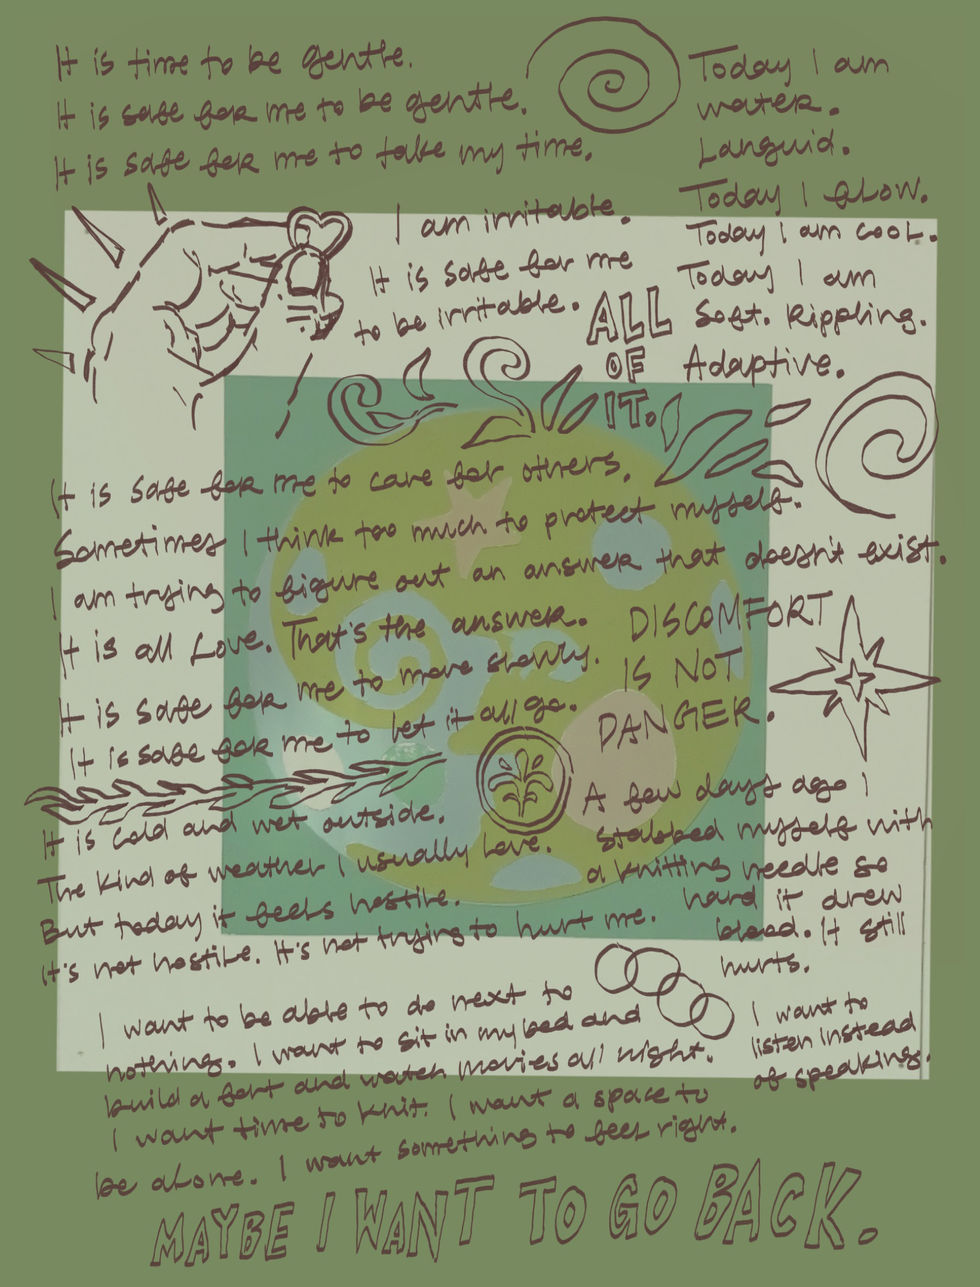 It is time to be gentle.
It is safe for me to be gentle.
It is safe for me to take my time.
Today I am
water.
Languid.
Today I flow.
Today I am cool.
Today I am
Soft. Rippling.
Adaptive.
I am irritable.
It is safe for me
to be irritable.
ALL
OF
IT.
It is safe for me to care for others.
Sometimes I think too much to protect myself.
I am trying to figure out an answer that doesn't exist.
It is all Love. That's the answer.
It is safe for me to move slowly.
It is safe for me to let it all go.
DISCOMFORT
IS NOT
DANGER.
It is cold and wet outside.
The kind of weather I usually love.
But today it feels hostile.
It's not hostile. It's not trying to hurt me.
A few days ago I
stabbed myself with
a knitting needle so
hard it drew
blood. It still
hurts.
I want to be able to do next to
nothing. I want to sit in my bed and
build a fort and watch movies all night.
I want time to knit. I want a space to
be alone. I want something to feel right.
I want to
listen instead
of speaking.
MAYBE I WANT TO GO BACK.